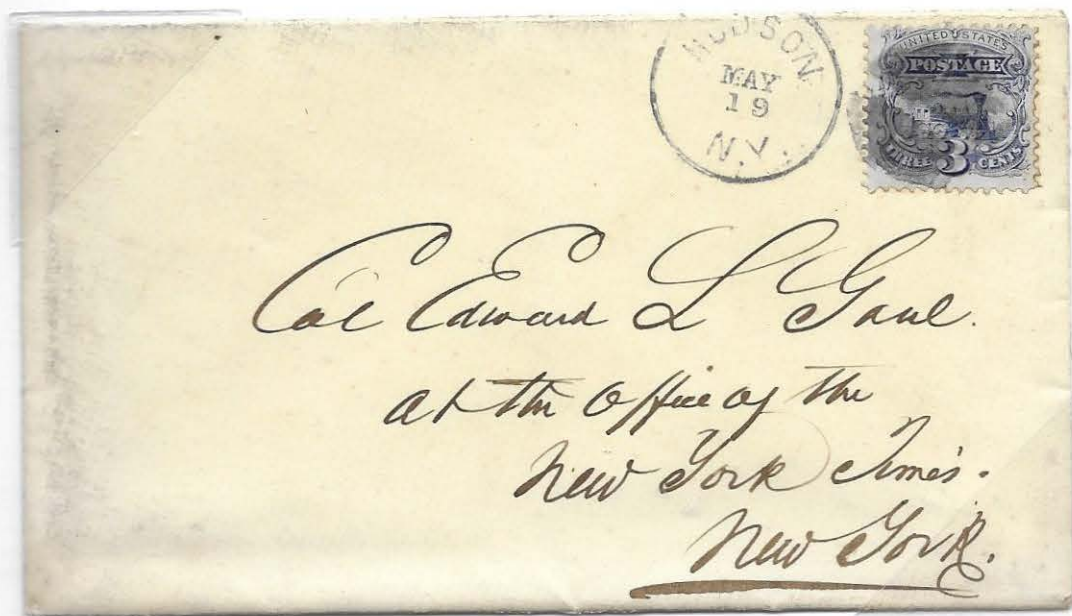 HUDSON
MAY
19
N.Y.
UNITED STATES
POSTAGE
THREE 3 CENTS
Col Edward L Gaul.
at the Office of the
New York Times.
New York.